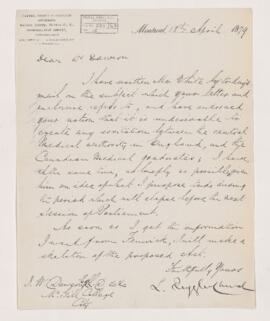 Montreal 18th April 1879
Dear Dr Dawson
I have written Mr White by today's
mail on the subject which your letter and
enclosure refer to, and have endorsed
your notion that it is undesirable to
create any between the central
medical authority in England, and the
Canadian medical graduates; I have,
at the same time, as briefly as possible, given
him an idea of what I propose to do during
the period which will elapse before the next
session of Parliament.
As soon as I get the information
I want from Fenwick, I will make a
skeleton of the proposed Act.
Faithfully Yours
J. W. Dawson
McGill College
City